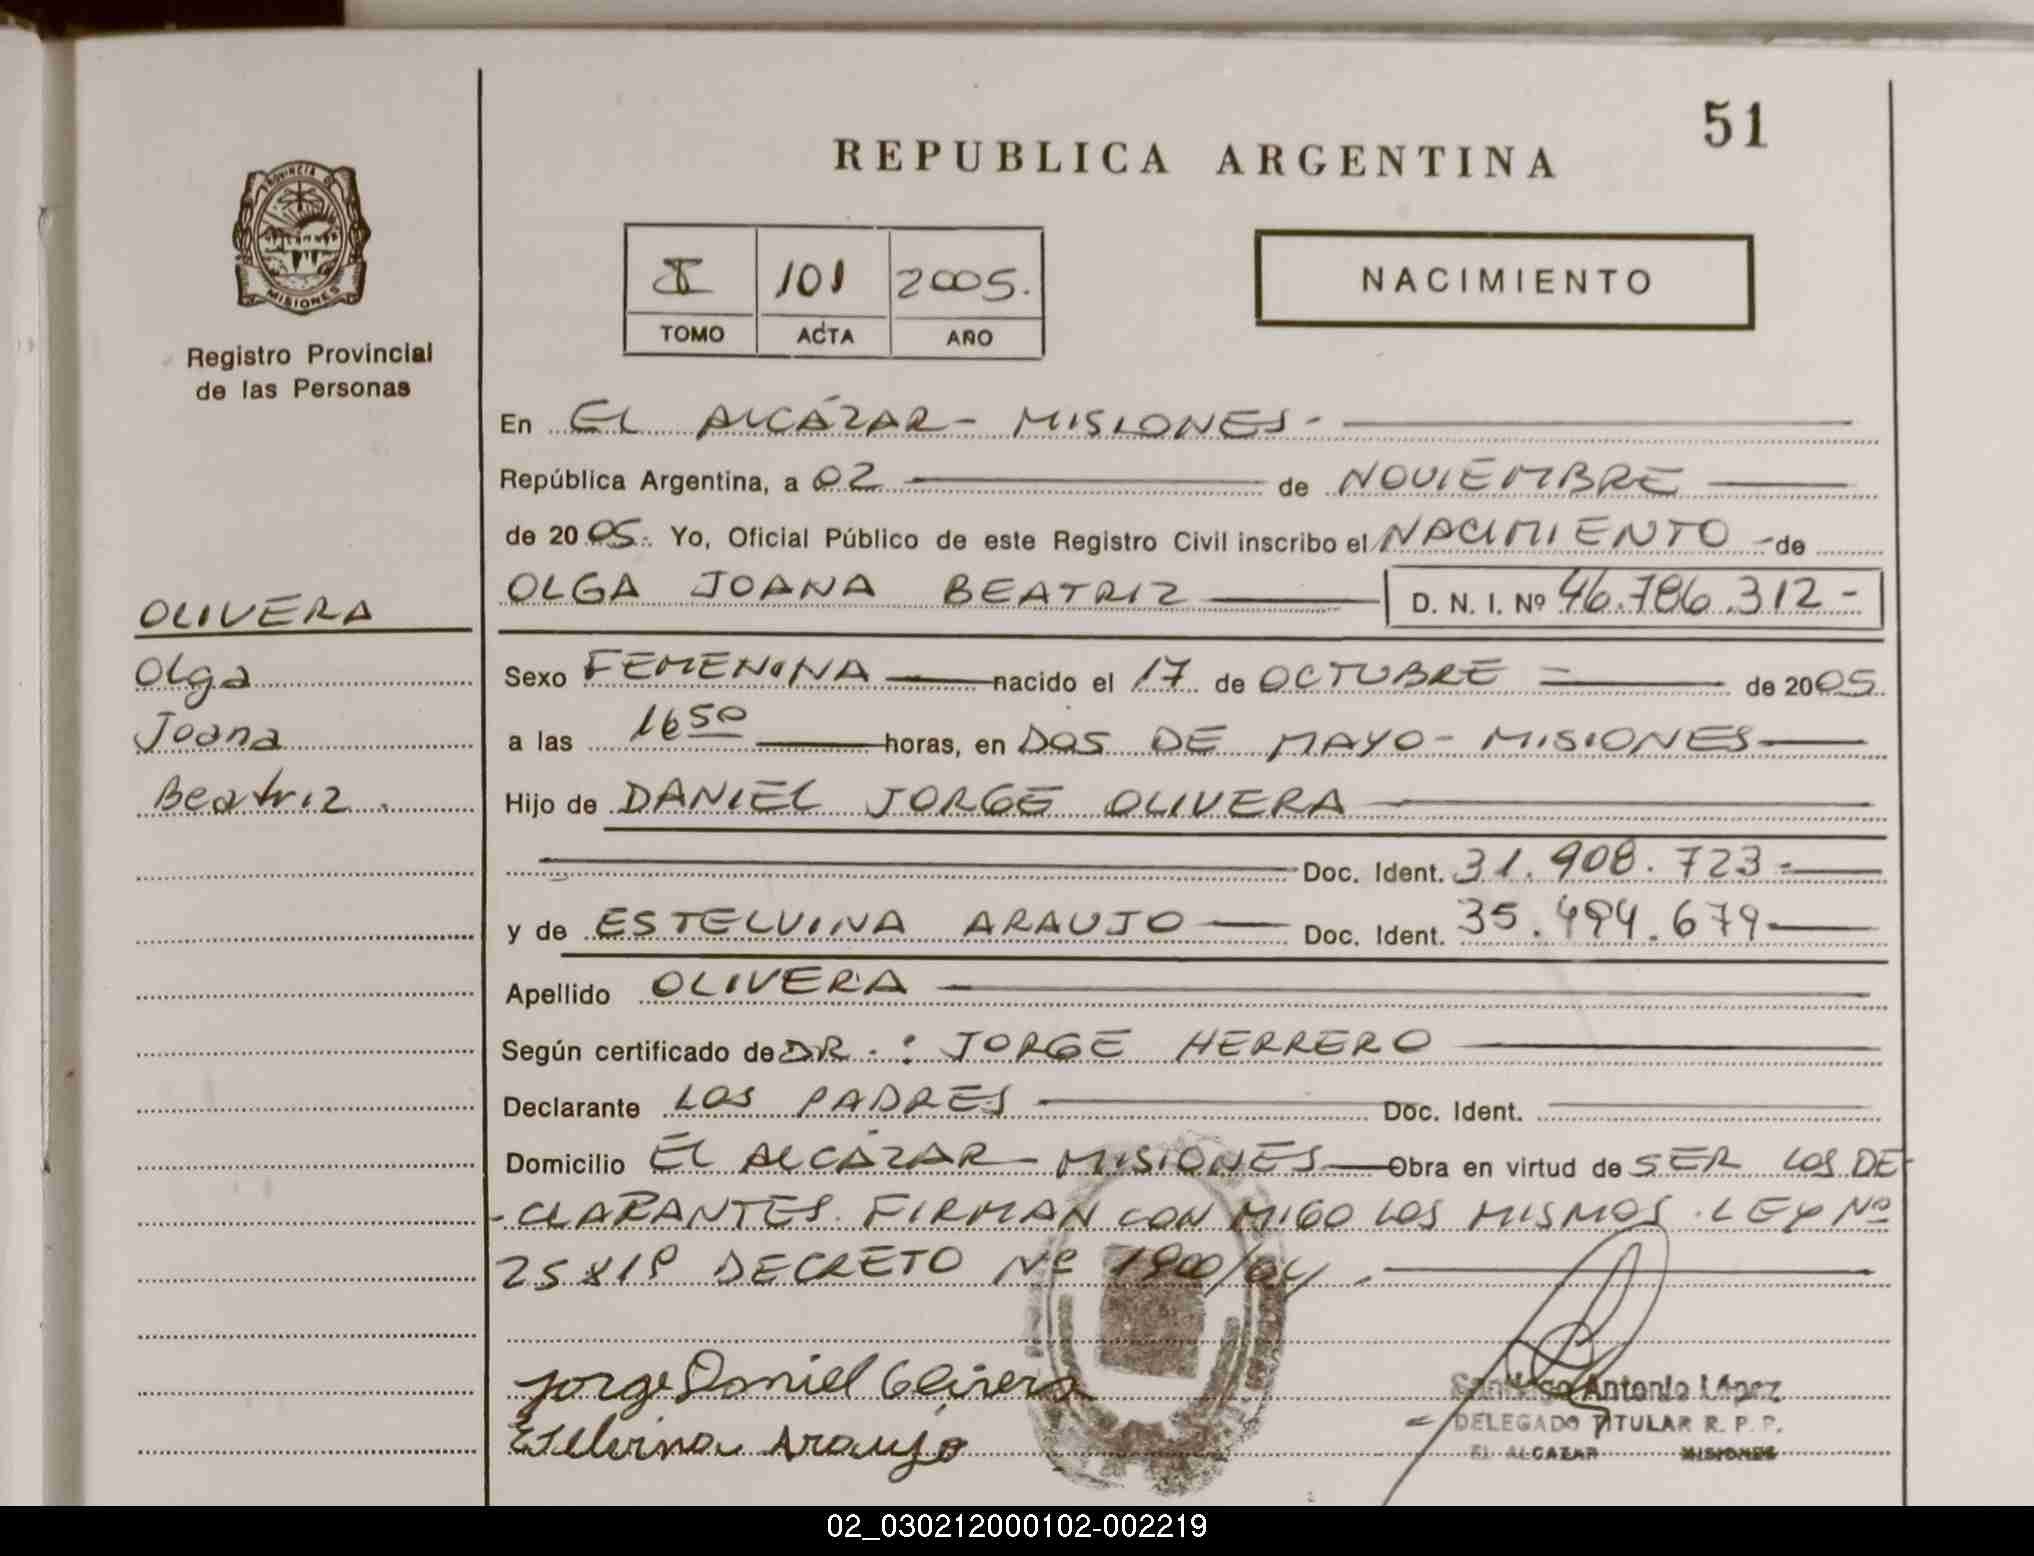 51
REPUBLICA ARGENTINA
PROVINCIA DE
MISIONES
Registro Provincial
de las Personas
I 101 2005.
TOMO ACTA AÑO
NACIMIENTO
En EL ALCÁZAR - MISIONES -
República Argentina, a 02 de NOVIEMBRE
de 2005. Yo, Oficial Público de este Registro Civil inscribo el NACIMIENTO - de
OLGA JOANA BEATRIZ D. N. I. Nº 46.786.312 -
OLIVERA
Olga
Joana
Beatriz.
Sexo FEMENINA nacido el 17 de OCTUBRE = de 2005
a las 16 50 horas, en DOS DE MAYO - MISIONES
Hijo de DANIEL JORGE OLIVERA
Doc. Ident. 31.908.723 =
y de ESTELVINA ARAUJO Doc. Ident. 35.494.679
Apellido OLIVERA
Según certificado de DR.: JORGE HERRERO
Declarante LOS PADRES Doc. Ident.
Domicilio EL ALCÁZAR - MISIONES Obra en virtud de SER LOS DE-
-CLARANTES. FIRMAN CON MIGO LOS MISMOS. LEY Nº
25819 DECRETO Nº 1900/04.
Jorge Daniel Olivera
Estelvina Araujo
Santiago Antonio López
DELEGADO TITULAR R. P. P.
EL ALCAZAR MISIONES
02_030212000102-002219